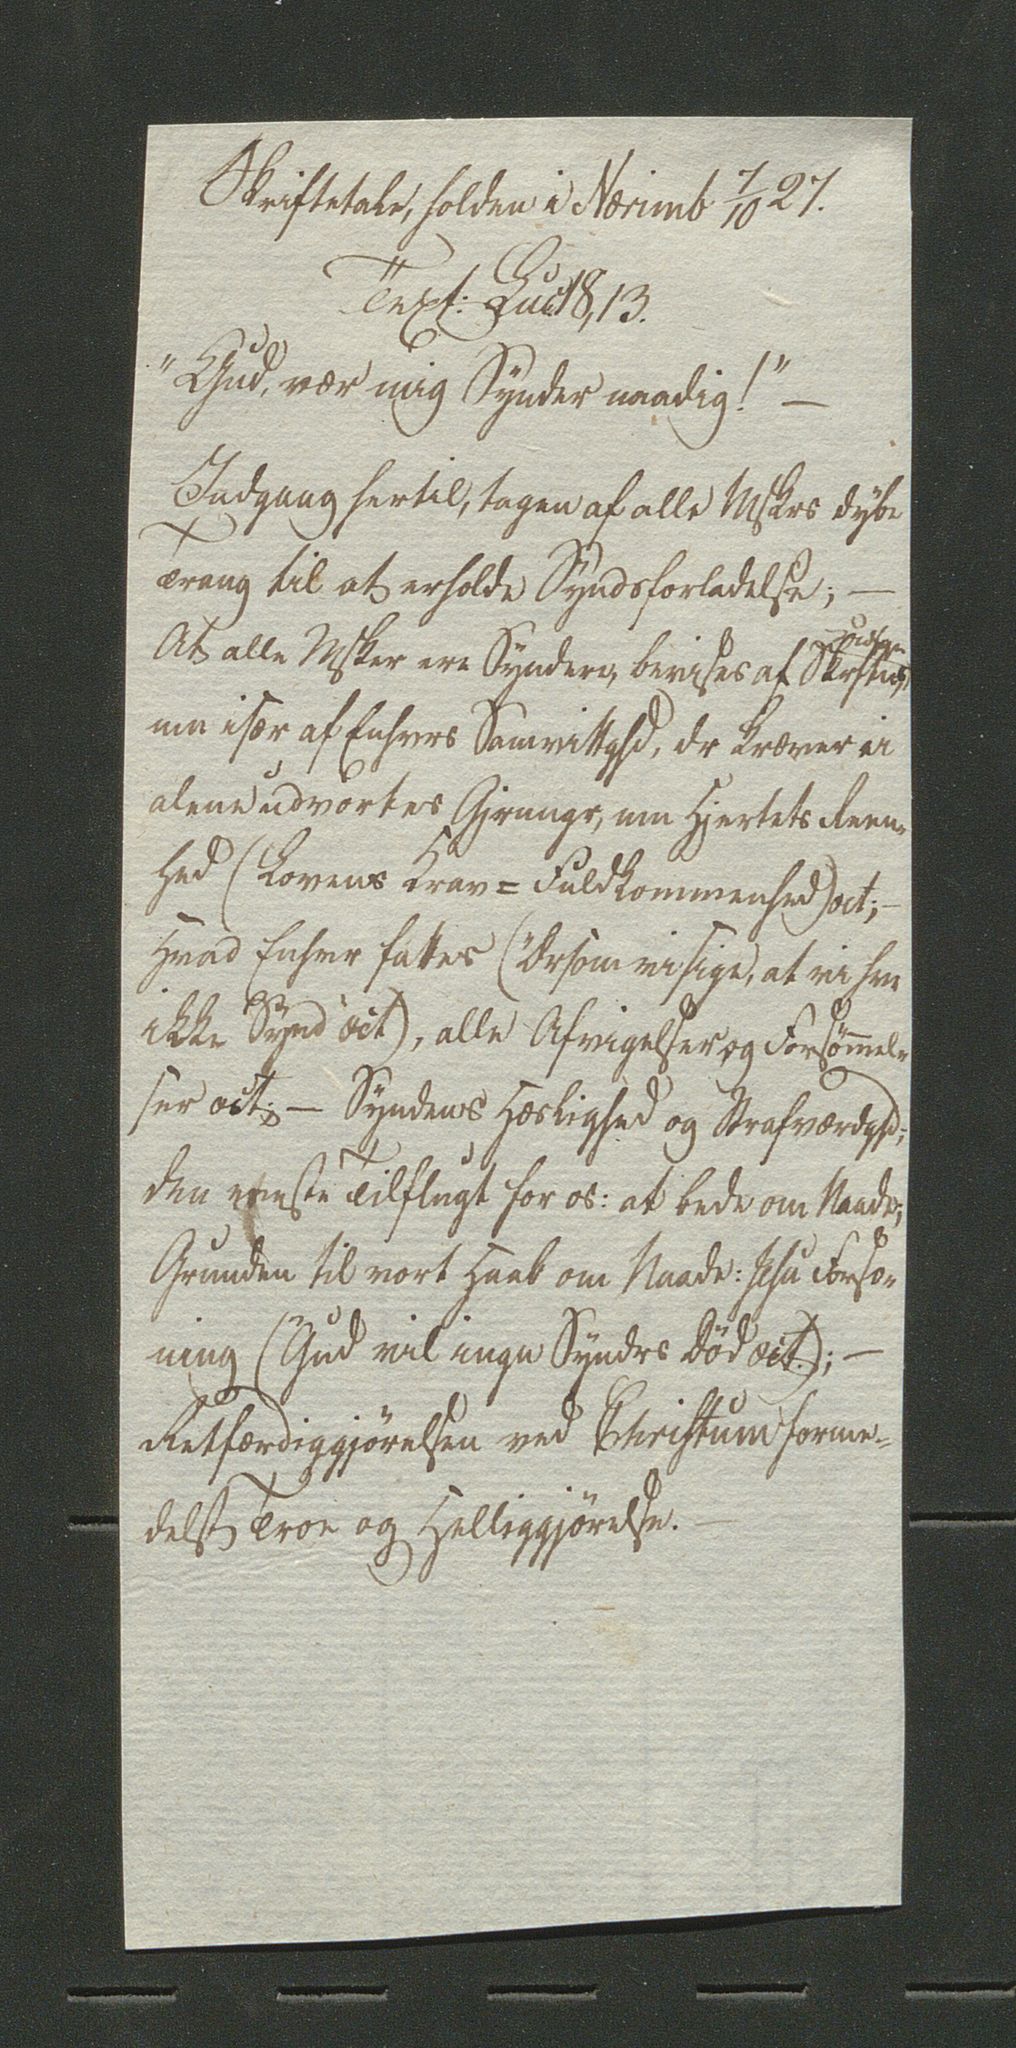 Skriftetale, holden i Nærimb 7/10 27.
Text: Luc 18, 13.
"Gud, vær mig Synder naadig!" —
Indgang hertil, tagen af alle Mskrs dybe
Trang til at erholde Syndsforladelse; —
At alle Msker ere Syndere, bevises af Skrftens,
mn især af Enhvers Samvittghd, dr kræver ei
alene udvortes Gjrnngr, mn Hjertets Reen-
hed (Lovens Krav = Fuldkommenhed) oct; —
Hvad Enhvr fattes ("Drsom vi sige, at vi hve
ikke Synd" oct), alle Afvigelser og Forsømmel-
ser oct; — Syndens Hæslighed og Strafværdghd;
den eneste Tilflugt for os: at bede om Naade;
Grunden til vort Haab om Naade: Jesu Forso-
ning ("Gud vil ingn Syndrs Død oct.); —
Retfærdiggjørelsen ved Christum forme-
delst Troe og Helliggjørelse. —